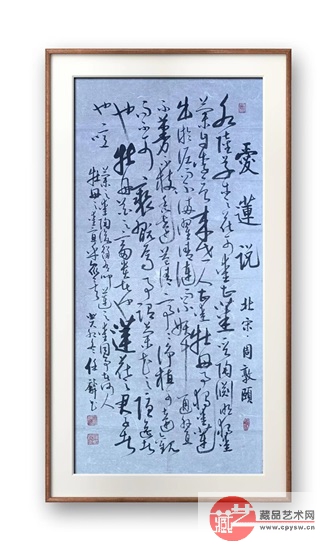 愛蓮說 北宋·周敦頤
水陸草木之花可愛者甚蕃晉陶淵明獨愛
菊自李唐來世人甚愛牡丹予獨愛蓮之
出於淤泥而不染濯清漣而不妖中通外直
不蔓不枝香遠益清亭亭淨植可遠觀
而不可褻翫焉予謂菊花之隱逸者
也牡丹花之富貴者也蓮花之君子者
也噫
菊之愛陶後鮮有聞蓮之愛同予者何人
牡丹之愛宜乎眾矣
藏品艺术网
www.cpysw.cn